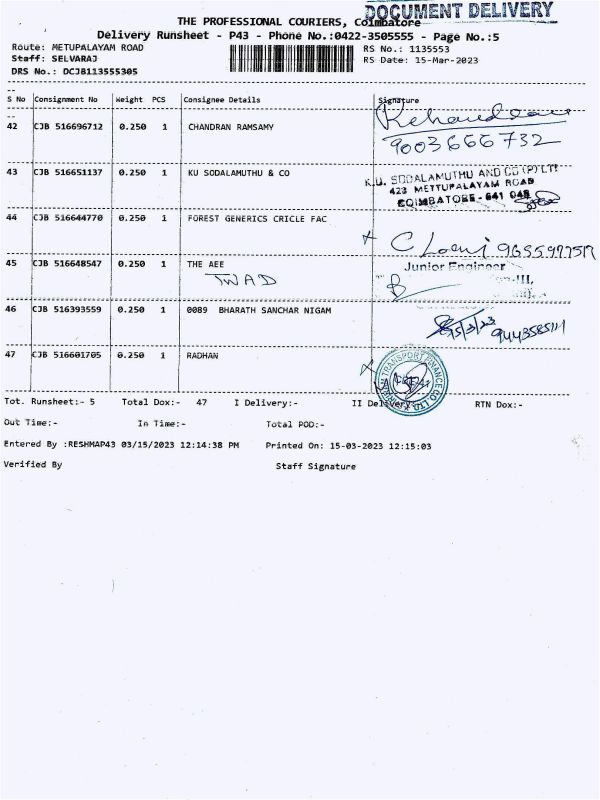 DOCUMENT DELIVERY
THE PROFESSIONAL COURIERS, Coimbatore
Delivery Runsheet - P43 - Phone No.:0422-3505555 - Page No.:5
Route: METUPALAYAM ROAD
RS No.: 1135553
Staff: SELVARAJ
RS Date: 15-Mar-2023
DRS No.: DCJ8113555305
S No Consignment No Weight PCS Consignee Details Signature
42 CJB 516696712 0.250 1 CHANDRAN RAMSAMY
9003666732
43 CJB 516651137 0.250 1 KU SODALAMUTHU & CO
K.U. SODALAMUTHU AND CO (P) LTD
423 METTUPALAYAM ROAD
COIMBATORE - 641 043
44 CJB 516644770 0.250 1 FOREST GENERICS CRICLE FAC
45 CJB 516648547 0.250 1 THE AEE
Junior Engineer
TWAD
46 CJB 516393559 0.250 1 0089 BHARATH SANCHAR NIGAM
15/3/23
47 CJB 516601705 0.250 1 RADHAN
TRANSPORT FINANCE CO. LTD.
Tot. Runsheet:- 5 Total Dox:- 47 I Delivery:- II Delivery:- RTN Dox:-
Out Time:- In Time:- Total POD:-
Entered By :RESHMAP43 03/15/2023 12:14:38 PM Printed On: 15-03-2023 12:15:03
Verified By Staff Signature